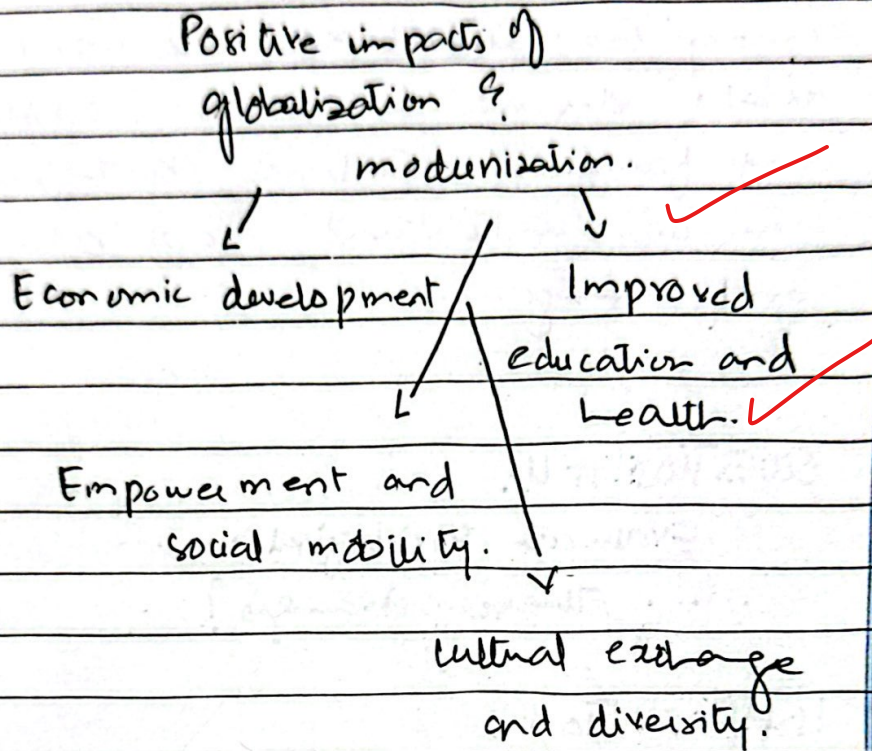 Positive impacts of
globalization &
modernization.
Economic development
Improved
education and
health.
Empowerment and
social mobility.
Cultural exchange
and diversity.